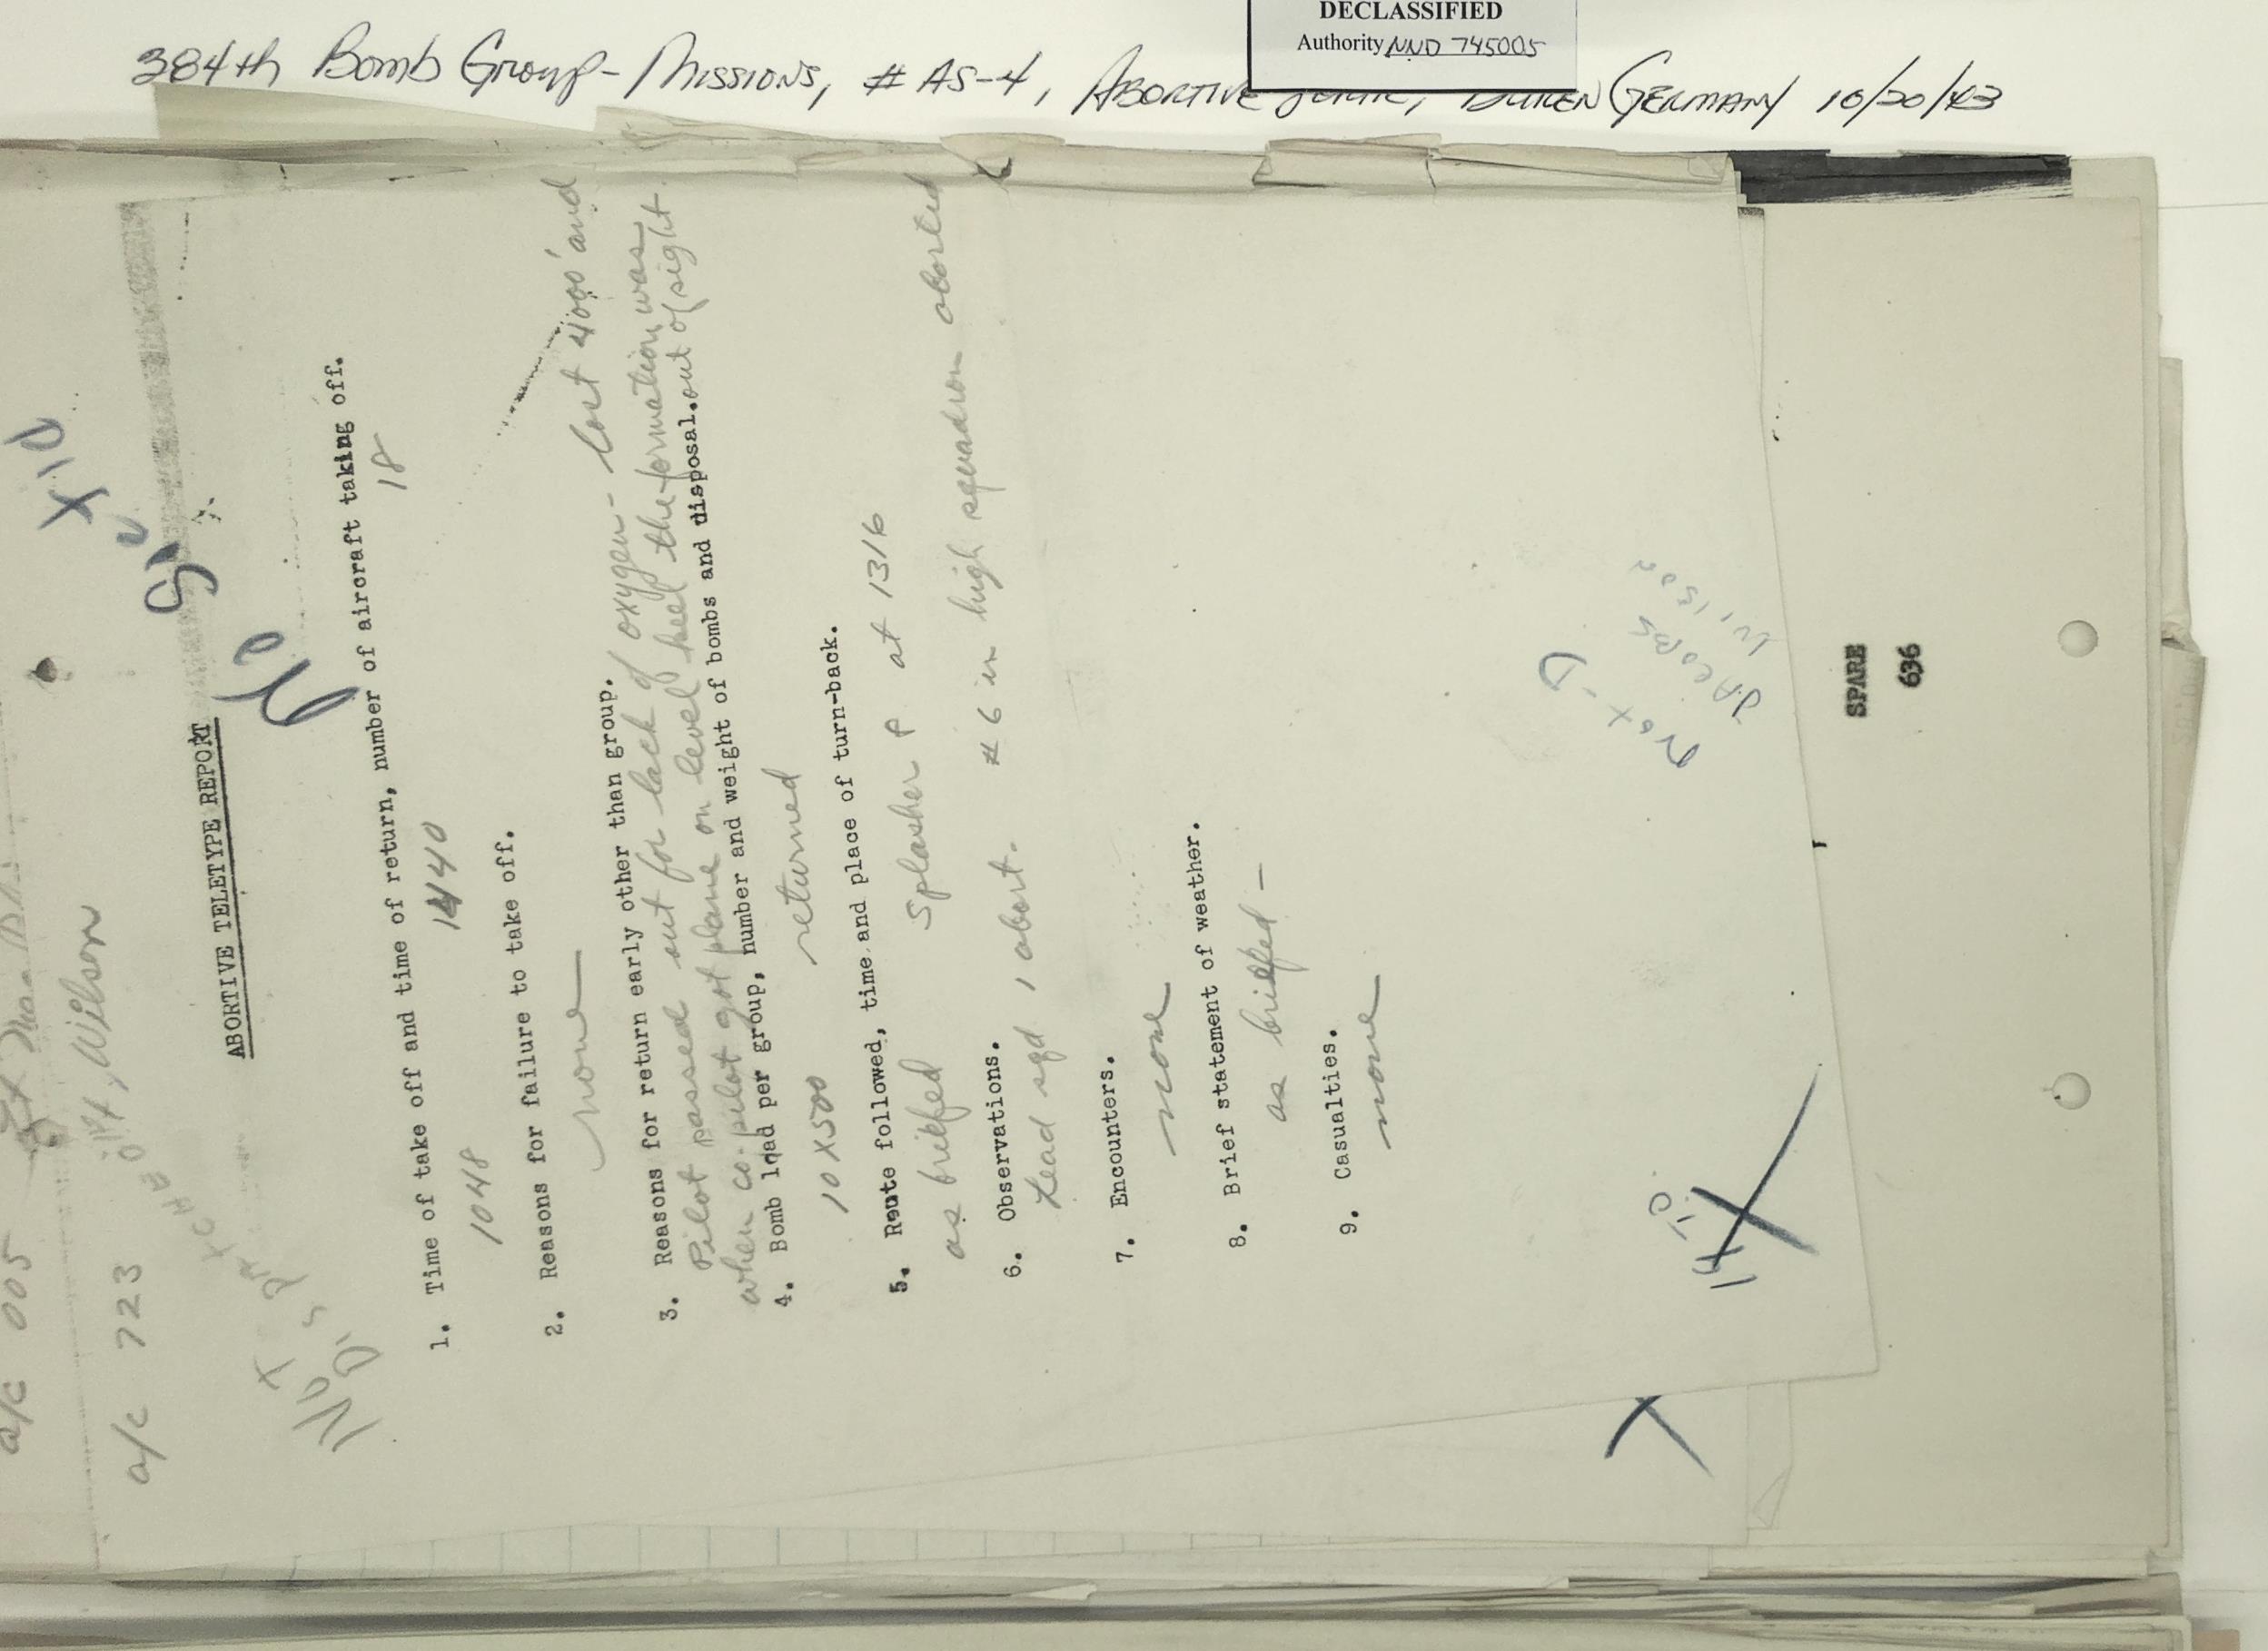 DECLASSIFIED
Authority NND 745005
384th Bomb Group - Missions, # AS-4, Abortive Germany 10/20/43
a/c 005
a/c 723
Wilson
ABORTIVE TELETYPE REPORT
1. Time of take off and time of return, number of aircraft taking off.
1048 1440 18
2. Reasons for failure to take off.
none
3. Reasons for return early other than group.
Pilot passed out for lack of oxygen - lost 4000' and
when co-pilot got plane on level keel the formation was
out of sight.
4. Bomb load per group, number and weight of bombs and disposal.
10 X 500 returned
5. Route followed, time and place of turn-back.
as briefed Splasher P at 1316
6. Observations.
Lead sqd 1 abort. # 6 in high squadron aborted
7. Encounters.
none
8. Brief statement of weather.
as briefed -
9. Casualties.
none
Jacobs
Wilson
SPARE
636